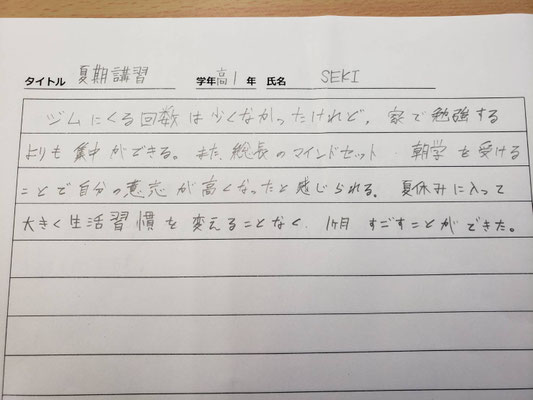 タイトル 夏期講習 学年 高1 年 氏名 SEKI
ジムにくる回数は少くなかったけれど、家で勉強する
よりも集中ができる。また、総長のマインドセット、朝学を受ける
ことで自分の意志が高くなったと感じられる。夏休みに入って
大きく生活習慣を変えることなく、1ヶ月すごすことができた。